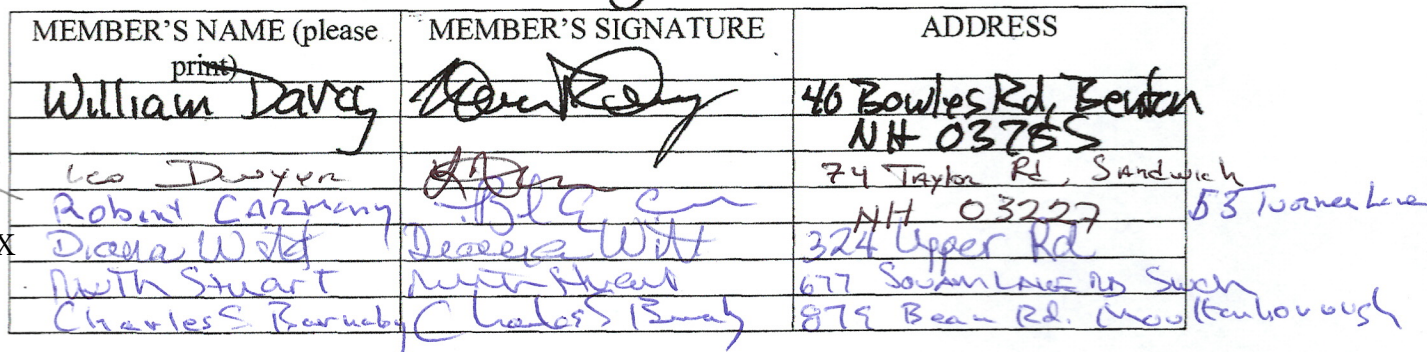 MEMBER'S NAME (please print) MEMBER'S SIGNATURE ADDRESS
William Davey 40 Bowles Rd, Benton
NH 03785
Leo Dwyer 74 Taylor Rd, Sandwich
Robert CARMANY NH 03227 53 Turner Lane
X Diana Witt 324 Upper Rd
Ruth Stuart 677 SQUAM LAKE RD
Charles S Barnaby Charles S Barnaby 879 Bean Rd. Moultonborough